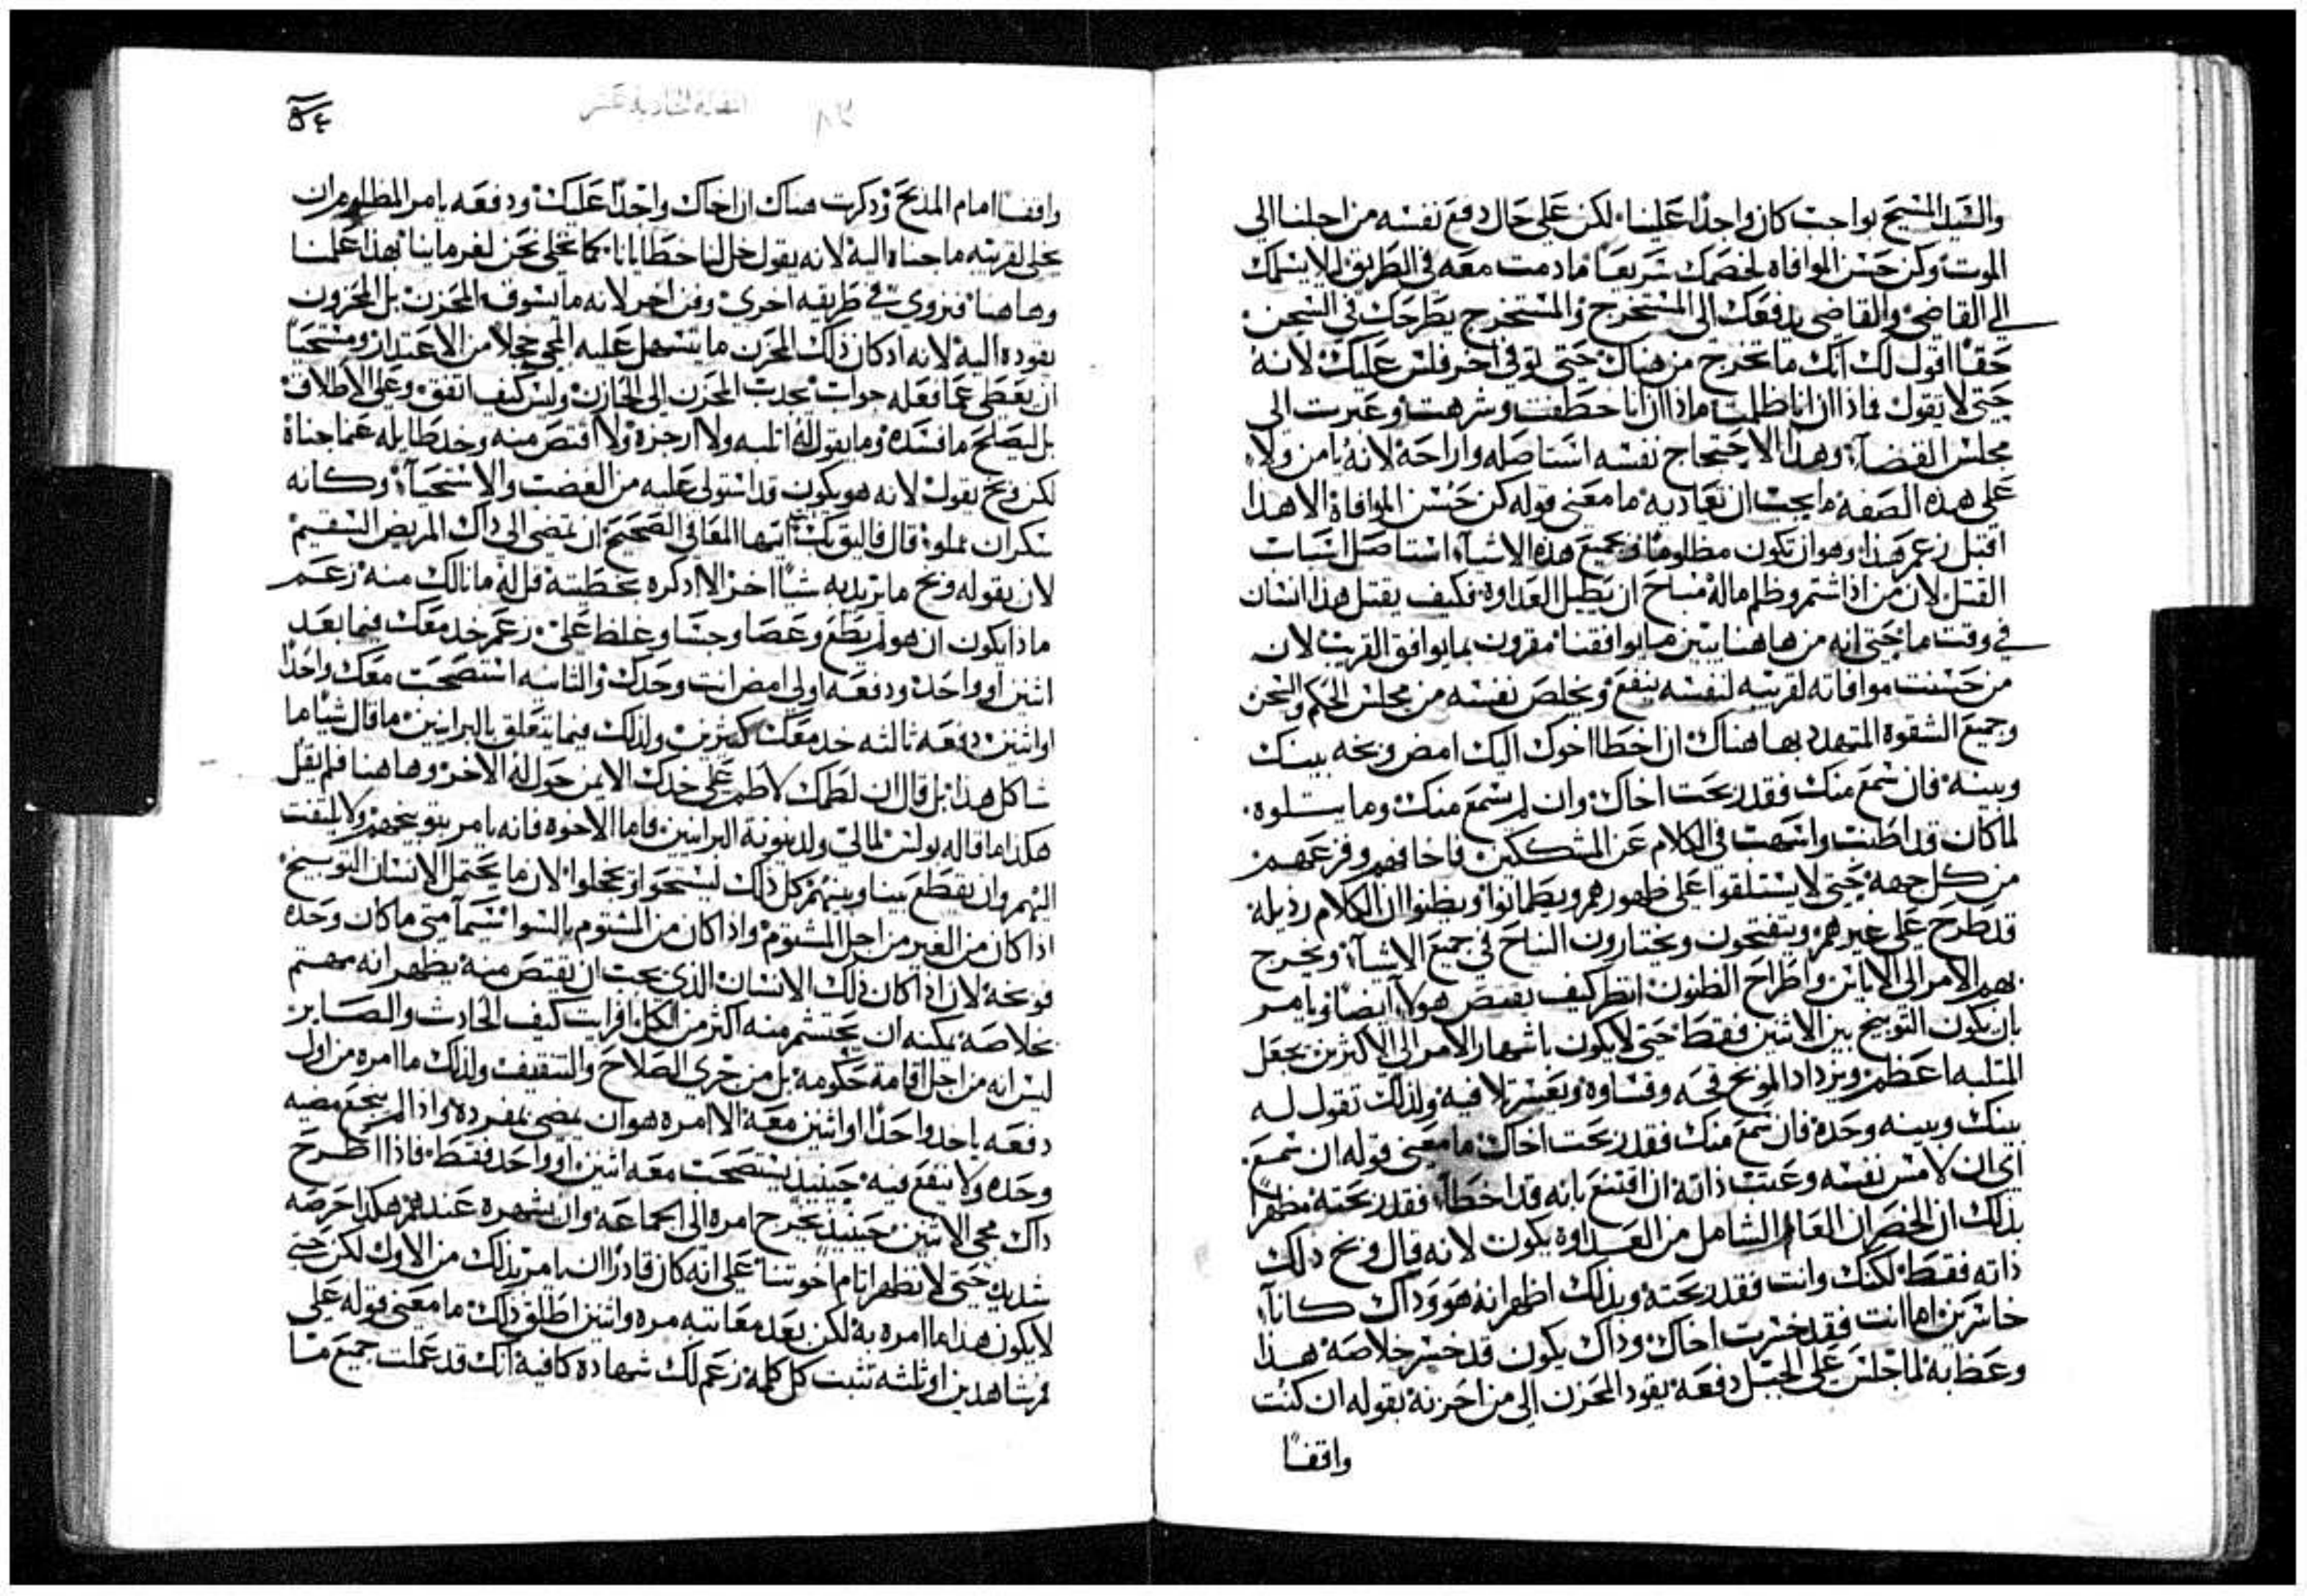 والسيد المسيح بواجب كان واجدًا علينا لكن على حال دفع نفسه من اجلنا الى
الموت وكن حسن الموافاه لخصمك سريعًا مادمت معه في الطريق ليلا يسلمك
الي القاضي والقاضي يدفعك الى المستخرج والمستخرج يطرحك في السجن
حقًا اقول لك انك ما تخرج من هناك حتى توفي اخر فلس عليك لانه
حتى لا يقول فماذا ان انا ظلمت ماذا ان انا خطفت وشرهت وعبرت الى
مجلس القضاء وهذا الاحتجاج نفسه استاصله واراحه لانه يامر ولا
على هذه الصفه ما يجب ان نعاديه ما معنى قوله كن حسن الموافاة الا هذا
اقبل زعم هذا وهو ان تكون مظلومًا وبجميع هذه الاشياء استاصل اسباب
القتل لان من اذا شتم وظلم ماله مباح ان يطيل العداوة فكيف يقتل هذا انسان
في وقت ما حتى انه من هاهنا يبين ما يوافقنا مقرون بما يوافق القريب لان
من حسنت موافاته لقريبه لنفسه ينفع ويخلص نفسه من مجلس الحكم والسجن
وجميع الشقوة المتهدد بها هناك ان اخطا اخوك اليك امض وبخه بينك
وبينه فان سمع منك فقد ربحت اخاك وان لم يسمع منك وما يتلوه
لما كان قد اطنب واسهب في الكلام عن المشككين فاخافهم وفزعهم
من كل جهه حتى لا يستلقوا على ظهورهم ويطمانوا ويظنوا ان الكلام رذيلة
قد طرح على غيرهم وينفتحون ويختارون النباح في جميع الاشياء ويخرج
بهم الامر الى الاباين واطراح الظنون انظر كيف يقتص هولاء ايضًا ويامر
بان يكون التوبيخ بين الاثنين فقط حتى لا يكون باشهار الامر الي الاكثرين يجعل
المثلبه اعظم ويزداد الموبخ قحه وقساوة ويعسر تلافيه ولذلك تقول له
بينك وبينه وحده فان سمع منك فقد ربحت اخاك ما معنى قوله ان سمع
اي ان لامس نفسه وعتب ذاته ان اقتنع بانه قد اخطا فقد ربحته مظهرًا
بذلك ان الخسران العام الشامل من العداوة يكون لانه قال وبخ ذلك
ذاته فقط لكنك وانت فقد ربحته وبذلك اظهر انه هو وذاك كانا
خاسرين اما انت فقد خسرت اخاك وذاك يكون قد خسر خلاصه هذا
وعظ به لما جلس على الجبل دفعه يقود المحزن الى من احزنه بقوله ان كنت
واقفًا
٥٤
واقفًا امام المذبح وذكرت هناك ان اخاك واجدًا عليك ودفعه يامر المظلوم ان
يخلي لقريبه ما جناه اليه لانه يقول خل لنا خطايانا كما نخلي نحن لغرماينا بهذا علمنا
وهاهنا فنروي في طريقه اخرى وفن اخر لانه ما يسوق المحزن بل المحزون
يقوده اليه لانه اذ كان ذلك المحزن ما يتسهل عليه المجي خجلا من الاعتذار ومستحيًا
ان يعطى عما فعله جواب يجذب المحزن الى الحازن وليس كيف اتفق وعلى الاطلاق
بل ليصلح ما فسده وما يقول له اثلبه ولا ازجره ولا اقتص منه وخذ طايله عما جناه
لكن وبخ يقول لانه هو يكون قد استولى عليه من الغضب والاستحياء وكانه
سكران مملوء قال فاليق بك ايها المعافى الصحيح ان تمضى الى ذاك المريض السقيم
لان بقوله وبخ ما يريد به شيًا اخر الا اذكره بخطيته قل له ما نالك منه زعم
ماذا يكون ان هو لم يطع وعصا وجسا وغلظ على زعم خذ معك فيما بعد
اثنين او واحد ودفعه اولى امض انت وحدك والثانيه استصحب معك واحدًا
او اثنين دفعه ثالثه خذ معك كثيرين ولذلك فيما يتعلق بالبرانيين ما قال شيا ما
شاكل هذا بل قال ان لطمك لاطم على خدك الايمن حول له الاخر وهاهنا فلم يقل
هكذا ما قاله بولس لمالي ولدينونة البرانيين فاما الاخوه فانه يامر بتوبيخهم ولا يلتفت
اليهم وان يقطع بيننا وبينهم كل ذلك ليستحوا ويخجلوا لان ما يحتمل الانسان التوبيخ
اذا كان من الغير من اجل المشتوم واذا كان من المشتوم بالسوا سيما متى ما كان وحده
فوبخه لان اذا كان ذلك الانسان الذي يجب ان يقتص منه يظهر انه مهتم
بخلاصه يمكنه ان يحتشم منه اكثر من الكل افرايت كيف الحادث والصاير
ليس انه من اجل اقامة حكومه بل من جري الصلاح والتثقيف ولذلك ما امره من اول
دفعه ياخذ واحدًا او اثنين معه الا امره هو ان يمضي بمفرده واذا لم ينجع مضيه
وحده ولا ينفع فيه حينيذ يستصحب معه اثنين او واحد فقط فاذا اطرح
ذاك مجي الاثنين حينيذ يخرج امره الى الجماعه وان يشهره عندهم هكذا حرصه
شديد حتى لا نظهر اثام اخوتنا على انه كان قادرًا ان يامر بذلك من الاول لكن حتى
لا يكون هذا ما امره به لكن بعد معاتبه مره واثنين اطلق ذلك ما معنى قوله على
فم شاهدين او ثلثه تثبت كل كلمه زعم لك شهاده كافيه انك قد عملت جميع ما